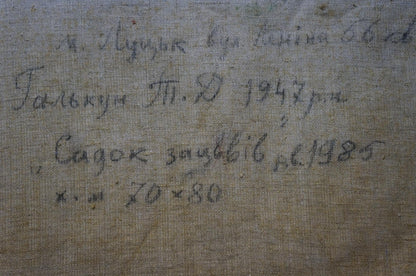 м. Луцьк вул. Леніна 66 кв
Галькун Т. Д 1947 р.н.
"Садок зацвів" 1985
х. м 70 × 80